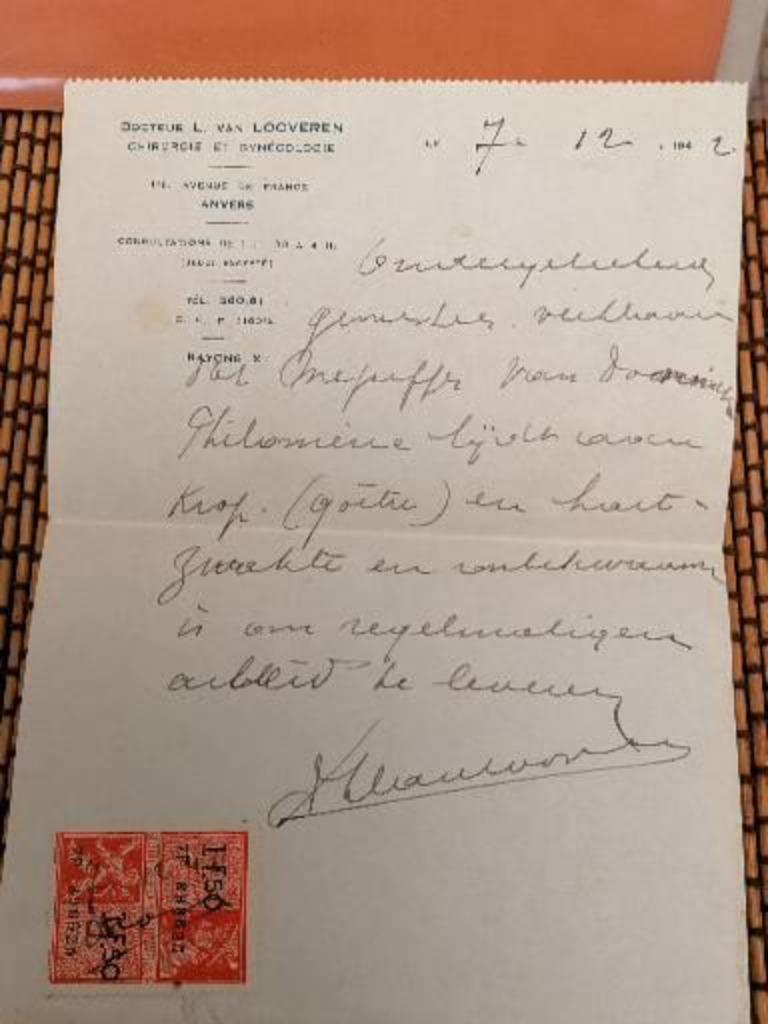 DOCTEUR L. VAN LOOVEREN
CHIRURGIE ET GYNÉCOLOGIE
AVENUE DE FRANCE
ANVERS
CONSULTATIONS DE
TÉL.
RAYONS X
LE 7. 12. 1942
Ondergeteekende
geneesheer verklaar
dat Mejuffr Van
Philomène lijdt aan
Krop. (goître) en hart-
zwakte en onbekwaam
is om regelmatigen
arbeid te leveren
1F50
1F50